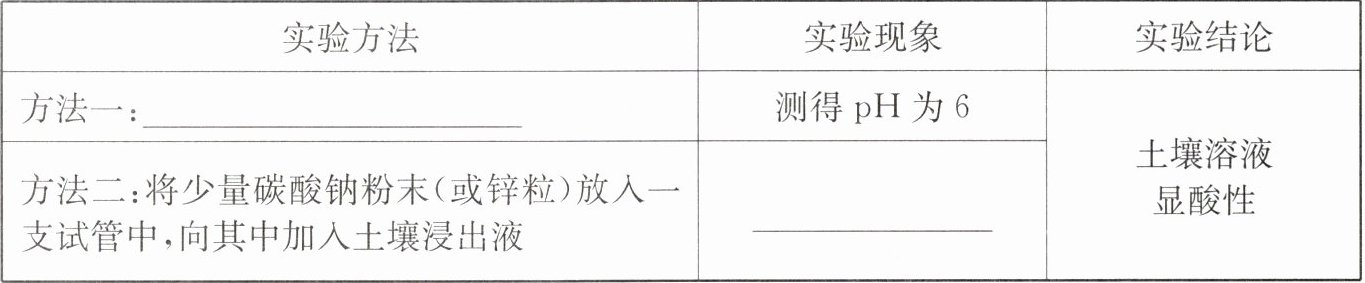 实验方法 实验现象 实验结论
方法一:____________________ 测得 pH 为 6
土壤溶液
显酸性
方法二:将少量碳酸钠粉末(或锌粒)放入一
支试管中,向其中加入土壤浸出液 ____________